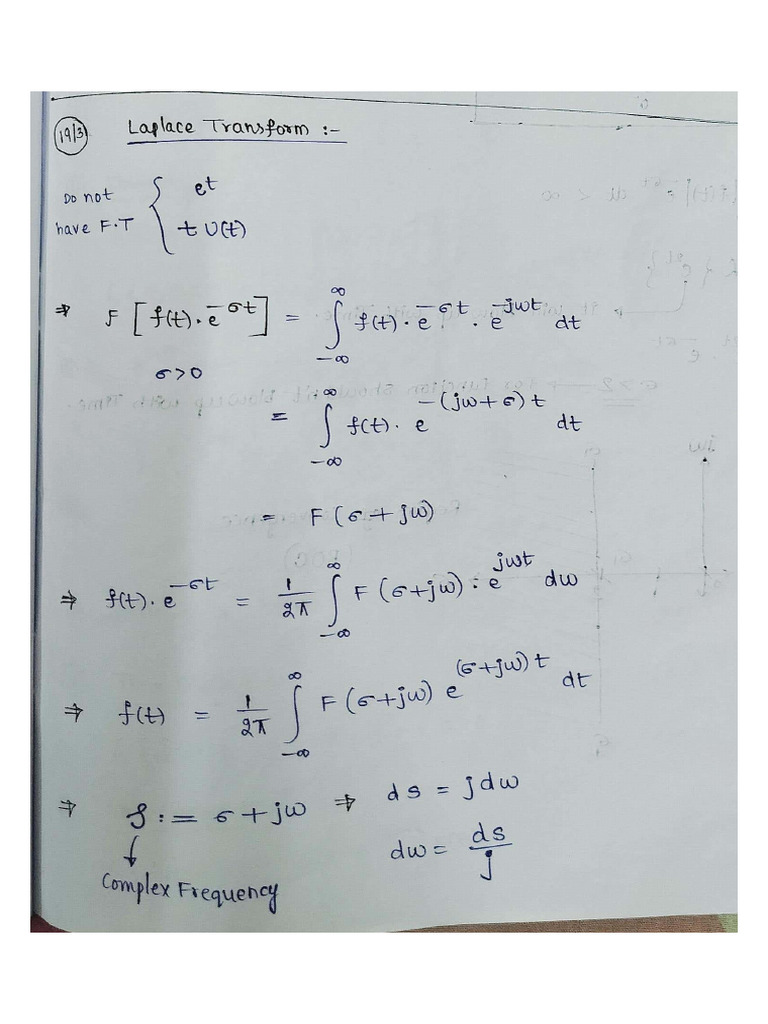 19/3 Laplace Transform :-
Do not have F.T { e^t
t U(t)
⇒ F [f(t). e^-σt] = ∫_-∞^∞ f(t). e^-σt . e^-jωt dt
σ>0
= ∫_-∞^∞ f(t). e^-(jω+σ)t dt
= F(σ+jω)
⇒ f(t). e^-σt = 1/2π ∫_-∞^∞ F(σ+jω). e^jωt dω
⇒ f(t) = 1/2π ∫_-∞^∞ F(σ+jω) e^(σ+jω)t dt
⇒ S := σ+jω ⇒ ds = jdω
dω = ds/j
↓
Complex Frequency